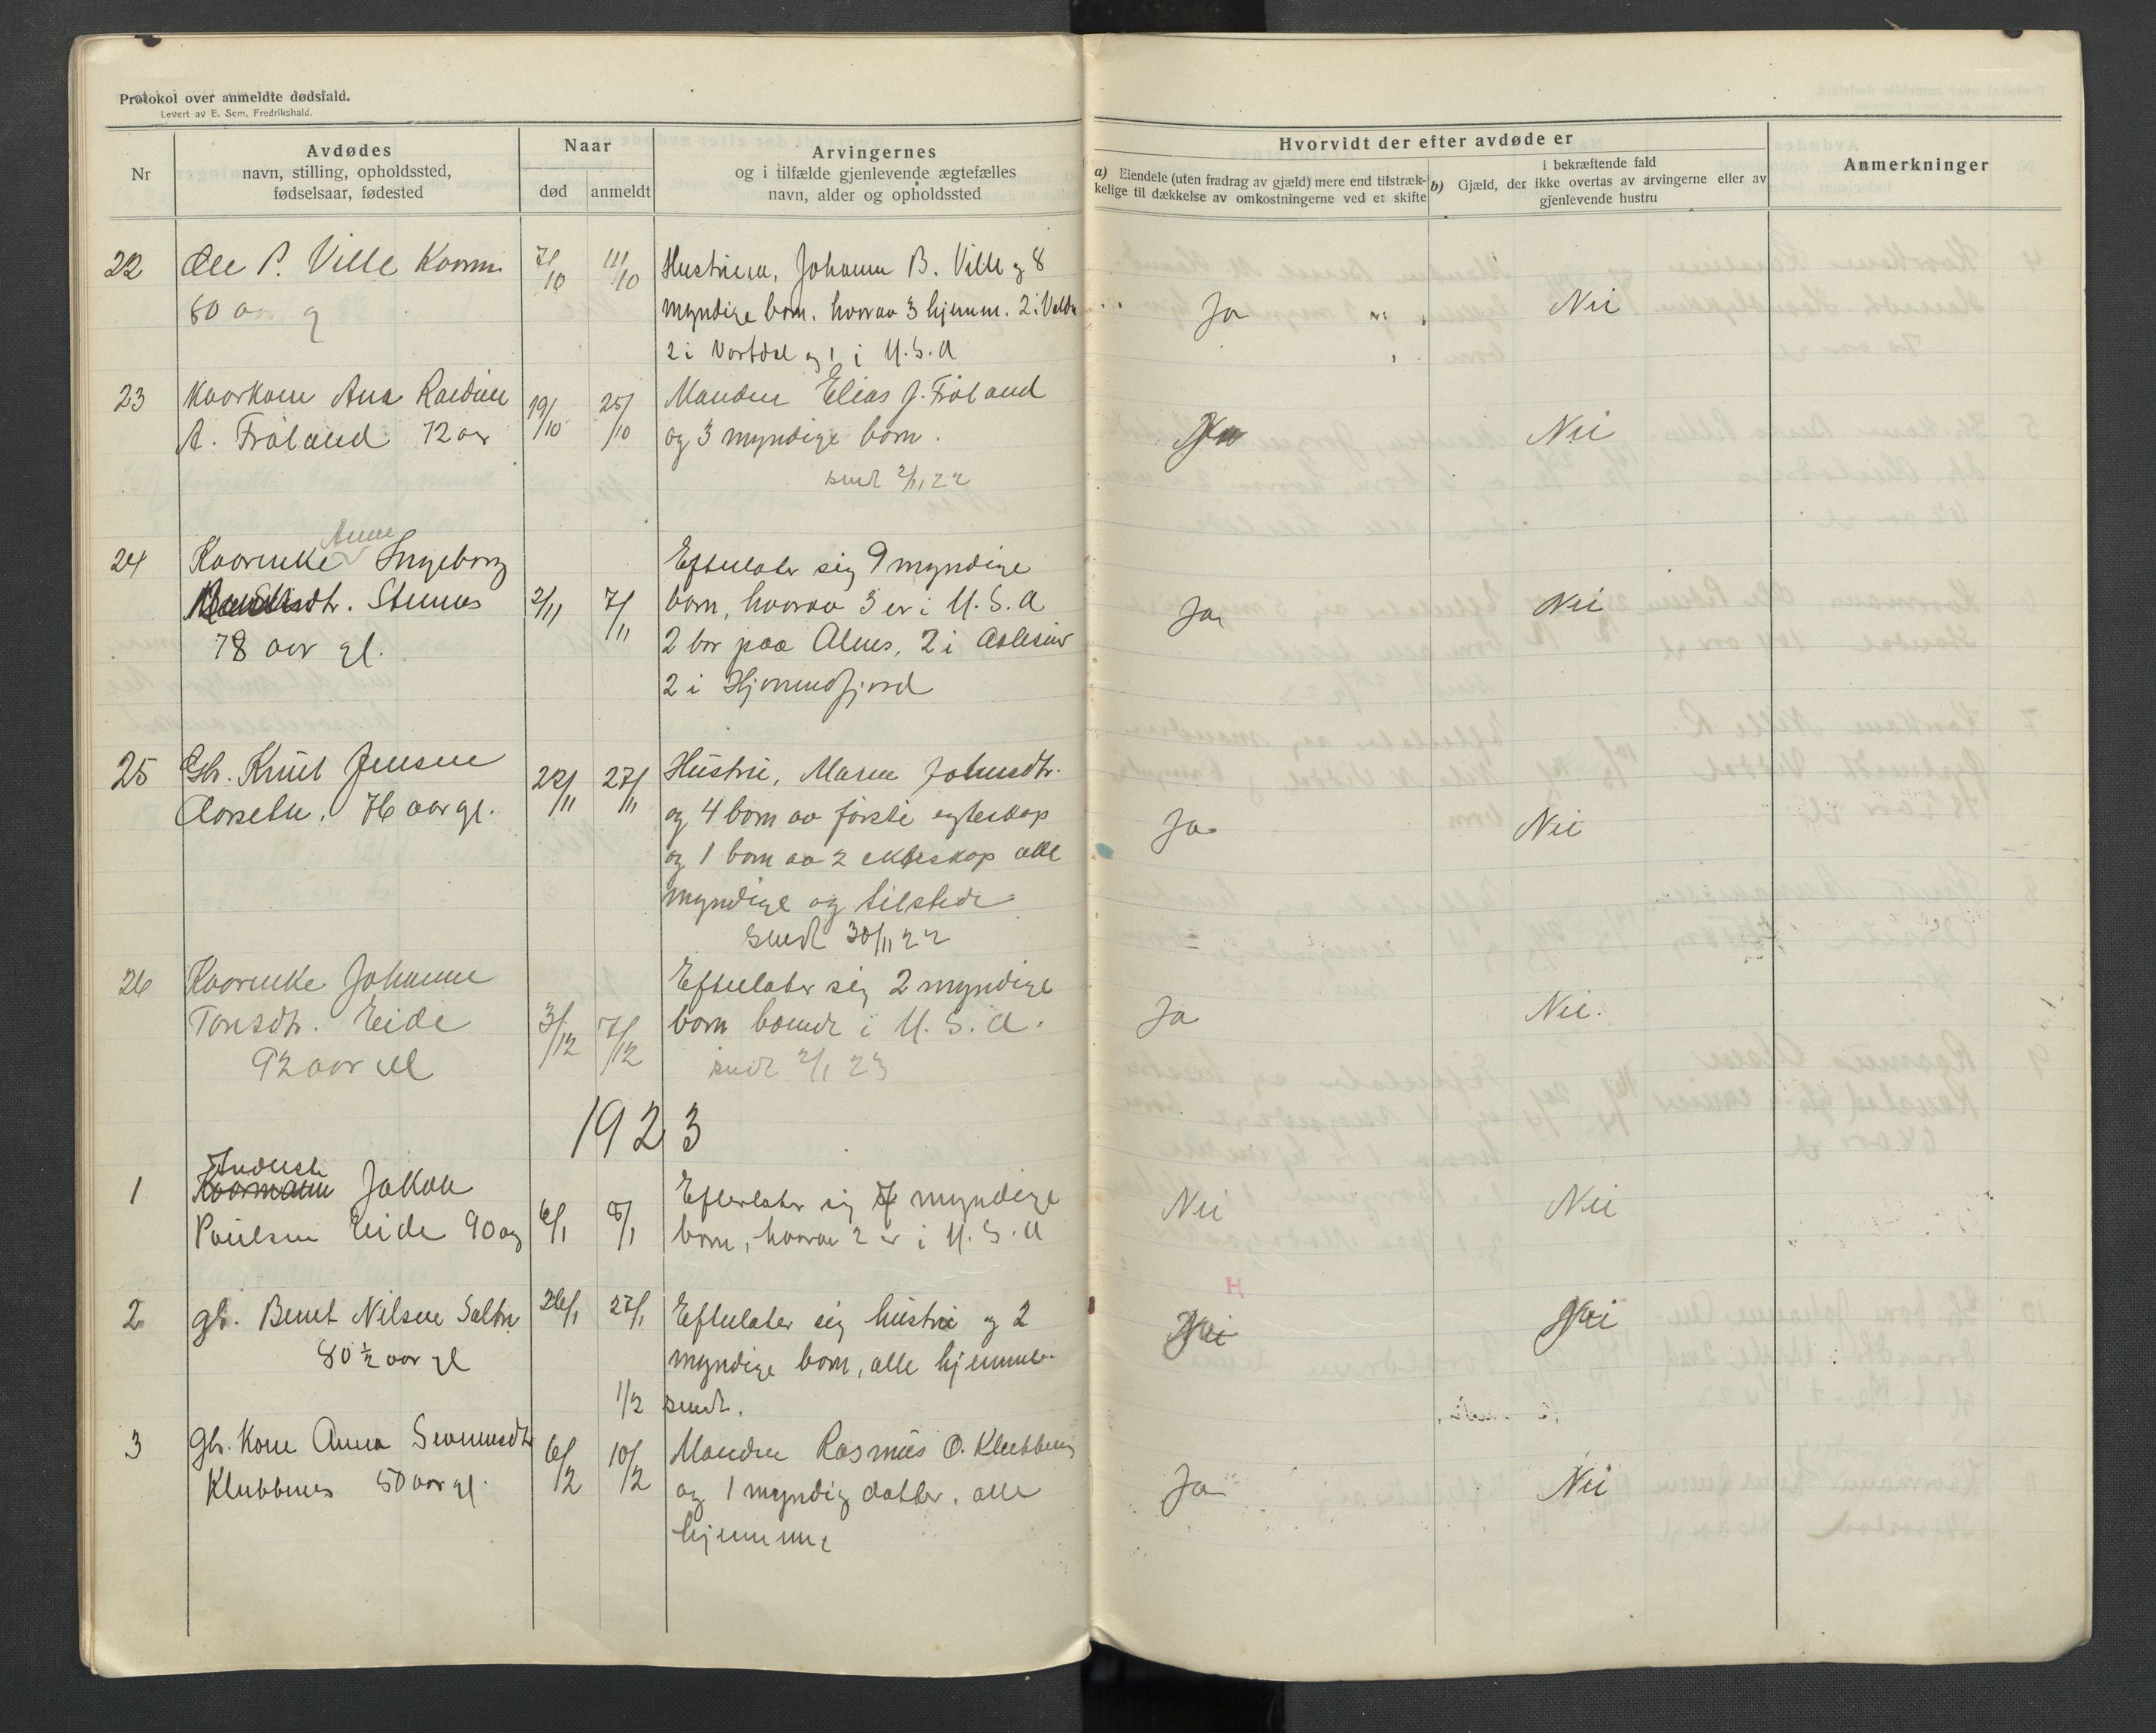 Protokol over anmeldte dødsfald.
Levert av E. Sem, Fredrikshald.
Nr
Avdødes
navn, stilling, opholdssted,
fødselsaar, fødested
Naar
død
anmeldt
Arvingernes
og i tilfælde gjenlevende ægtefælles
navn, alder og opholdssted
Hvorvidt der efter avdøde er
a) Eiendele (uten fradrag av gjæld) mere end tilstræk-
kelige til dækkelse av omkostningerne ved et skifte
i bekræftende fald
b) Gjæld, der ikke overtas av arvingerne eller av
gjenlevende hustru
Anmerkninger
22 Ole P. Ville Kaarm. 7/10 11/10 Hustruen, Johanne B. Ville og 8
80 aar g myndige born. hvorav 3 hjemm. 2 i Ja Nei
2 i Vartdal og 1 i U.S.A
23 Kaarkone Ana 19/10 25/10 Manden Elias J. Fröland
A. Fröland 72 aar og 3 myndige born. Ja Nei
sendt 2/11 22
24 Kaarenke Anne Ingeborg Efterlater sig 9 myndige
Stennes 2/11 7/11 born, hvorav 3 er i U.S.A Ja Nei
78 aar gl. 2 bor paa Alnes, 2 i Aalesund
2 i Hjørundfjord
25 Gbr. Knut Jensen 22/11 27/11 Hustru, Maren Johnsdtr.
Aarseth. 76 aar gl. og 4 born av første egteskap Ja Nei
og 1 born av 2 ekteskap alle
myndige og tilstede
Sendt 30/11 22
26 Kaarenke Johanne Efterlater sig 2 myndige
Eide 3/12 7/12 born boende i U.S.A. Ja Nei.
92 aar gl sendt 2/1 23
1923
Inderst
1 Kaarmann Jakob 6/1 8/1 Efterlater sig 7 myndige Nei Nei
Paulsen Eide 90 aar born, hvorav 2 er i U.S.A
H
2 gbr. Bernt Nilsen Sætre 26/1 27/1 Efterlater sig hustru og 2 Nei Nei
80 ½ aar gl myndige born, alle hjemme
1/2 sendt.
3 gbr. Kone Anna 6/2 10/2 Manden Rasmus O. Klubbenes
Klubbenes 50 aar gl. og 1 myndig datter. alle Ja Nei
hjemme